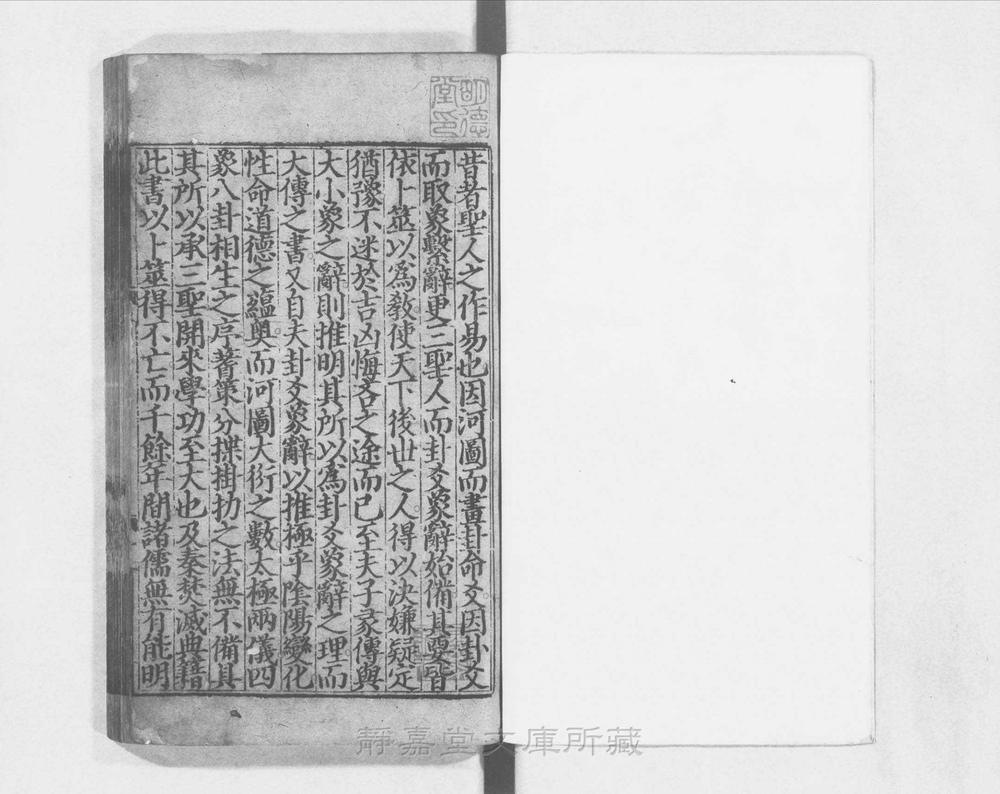 昔者聖人之作易也因河圖而畫卦命爻因卦爻
而取象繫辭更三聖人而卦爻彖辭始備其要皆
依卜筮以爲教使天下後世之人得以決嫌疑定
猶豫不迷於吉凶悔吝之途而已至夫子彖傳與
大小象之辭則推明其所以爲卦爻彖辭之理而
大傳之書又自夫卦爻彖辭以推極乎陰陽變化
性命道德之蘊奥而河圖大衍之數太極兩儀四
象八卦相生之序蓍策分揲掛扐之法無不備具
其所以承三聖開來學功至大也及秦焚滅典籍
此書以卜筮得不亡而千餘年間諸儒無有能明
明德
堂印
靜嘉堂文庫所藏